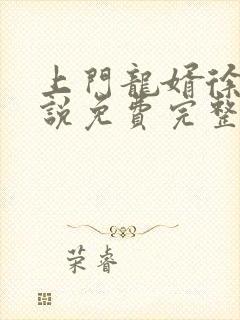 上門龍婿徐
說免費完整
荣睿